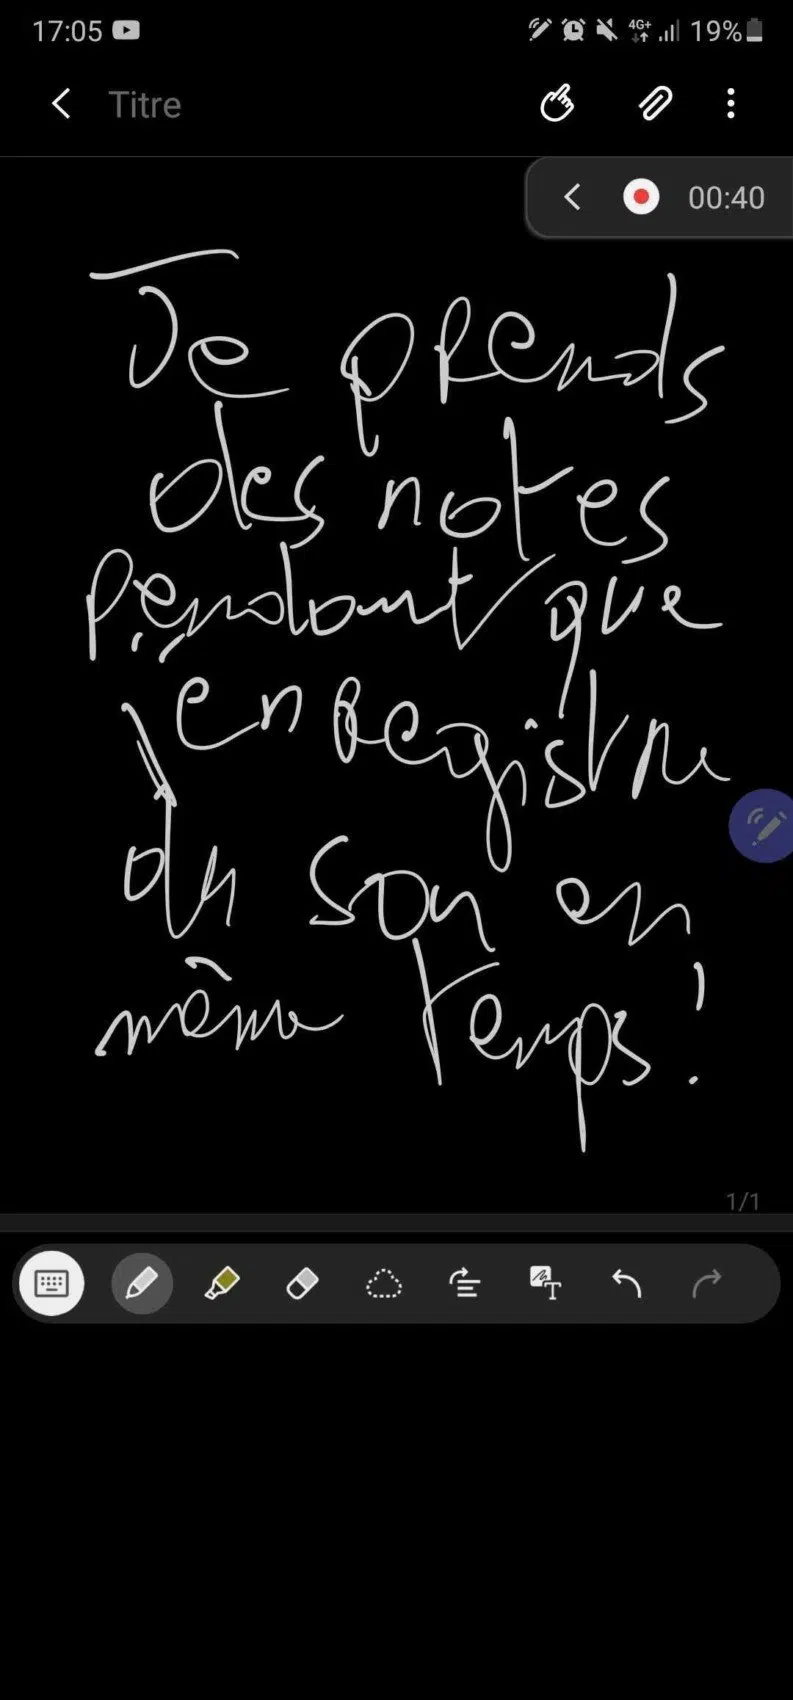 17:05 4G+ 19%
Titre
00:40
Je prends
des notes
pendant que
j'enregistre
du son en
même temps!
1/1
T